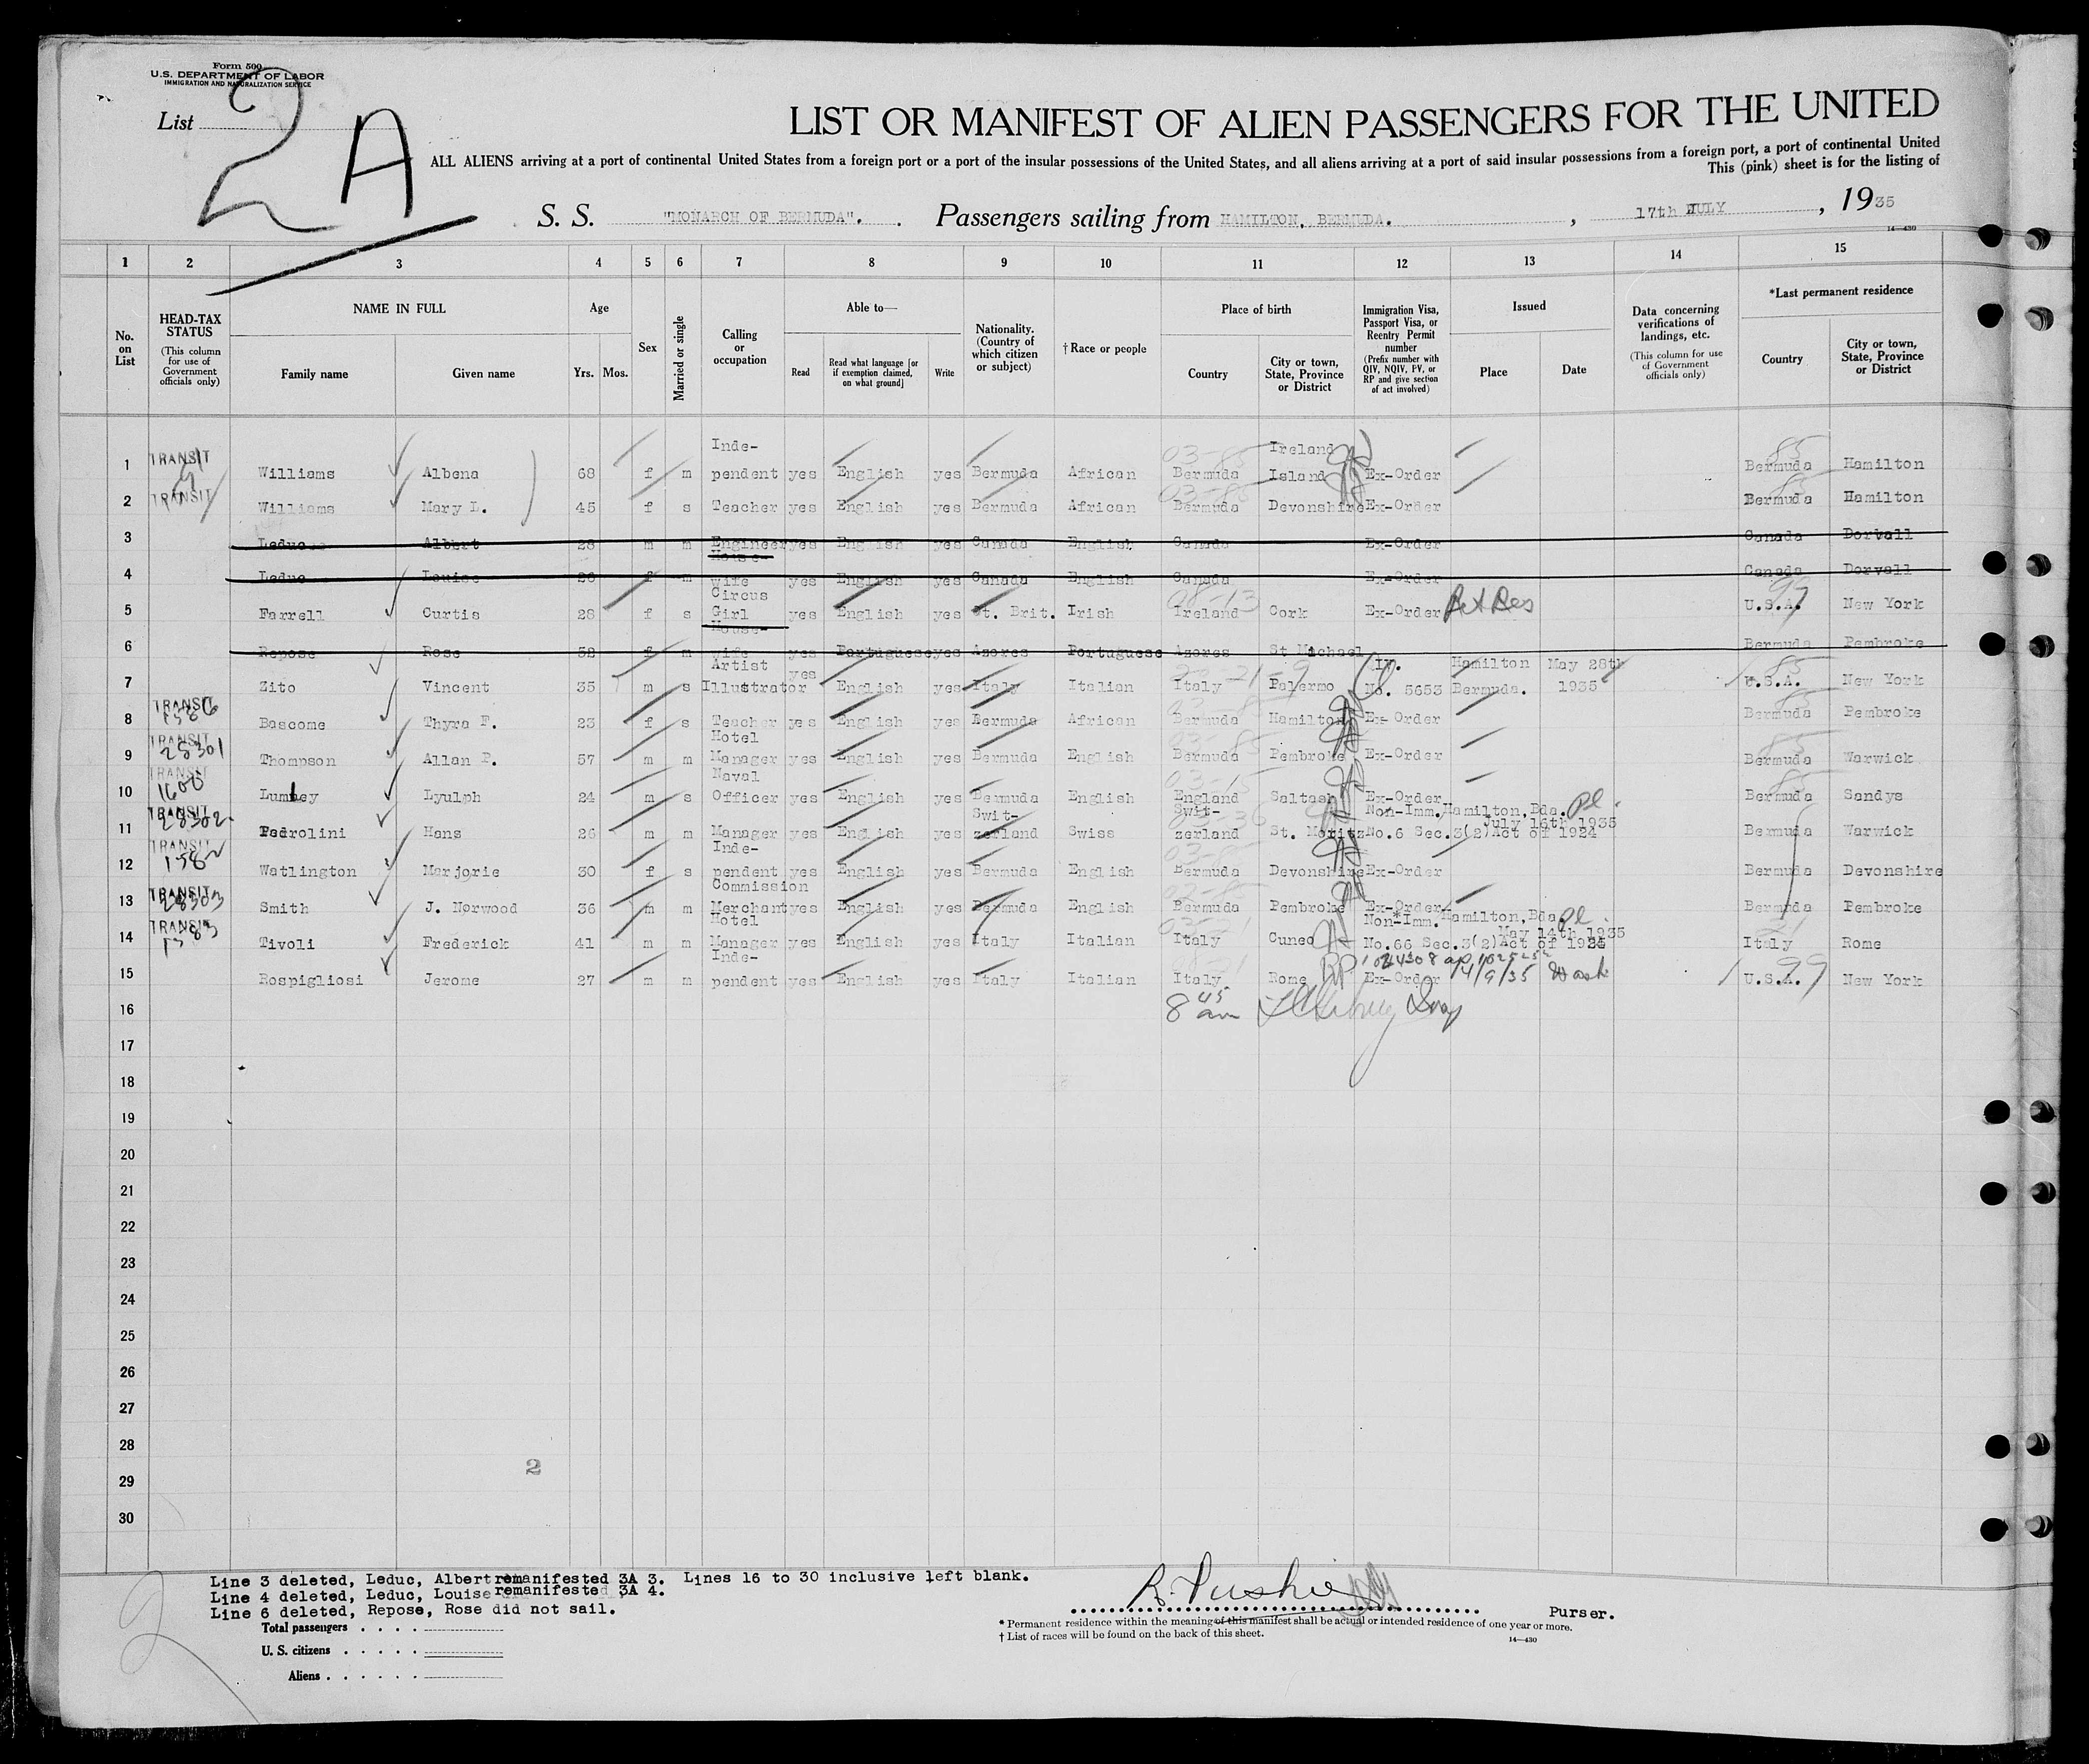 Form 500
U.S. DEPARTMENT OF LABOR
IMMIGRATION AND NATURALIZATION SERVICE
List 2 A
LIST OR MANIFEST OF ALIEN PASSENGERS FOR THE UNITED
ALL ALIENS arriving at a port of continental United States from a foreign port or a port of the insular possessions of the United States, and all aliens arriving at a port of said insular possessions from a foreign port, a port of continental United
This (pink) sheet is for the listing of
S. S. "MONARCH OF BERMUDA". Passengers sailing from HAMILTON, BERMUDA. , 17th JULY , 1935
14—430
1 2 3 4 5 6 7 8 9 10 11 12 13 14 15
No. on List
HEAD-TAX STATUS (This column for use of Government officials only)
NAME IN FULL
Family name Given name
Age
Yrs. Mos.
Sex
Married or single
Calling or occupation
Able to—
Read
Read what language [or if exemption claimed, on what ground]
Write
Nationality. (Country of which citizen or subject)
† Race or people
Place of birth
Country
City or town, State, Province or District
Immigration Visa, Passport Visa, or Reentry Permit number (Prefix number with QIV, NQIV, PV, or RP and give section of act involved)
Issued
Place Date
Data concerning verifications of landings, etc. (This column for use of Government officials only)
*Last permanent residence
Country
City or town, State, Province or District
1 TRANSIT Williams Albena 68 f m Inde-pendent yes English yes Bermuda African 03-85 Bermuda Ireland Island Ex-Order 85 Bermuda Hamilton
2 TRANSIT Williams Mary L. 45 f s Teacher yes English yes Bermuda African 03-85 Bermuda Devonshire Ex-Order 85 Bermuda Hamilton
3 Leduc Albert 28 m m Engineer yes English yes Canada English Canada Ex-Order Canada Dorvall
4 Leduc Louise 26 f m House-wife yes English yes Canada English Canada Ex-Order Canada Dorvall
5 Farrell Curtis 28 f s Circus Girl yes English yes Gt. Brit. Irish Ireland Cork Ex-Order Ret Res U.S.A. New York
6 Repose Rose 52 f m House-wife yes Portuguese yes Azores Portuguese Azores St Michael Bermuda Pembroke
7 Zito Vincent 35 m s Artist Illustrator yes English yes Italy Italian Italy Palermo No. 5653 Hamilton Bermuda. May 28th 1935 U.S.A. New York
8 TRANSIT 1586 Bascome Thyra F. 23 f s Teacher yes English yes Bermuda African Bermuda Hamilton Ex-Order 85 Bermuda Pembroke
9 TRANSIT 28301 Thompson Allan P. 57 m m Hotel Manager yes English yes Bermuda English 03-85 Bermuda Pembroke Ex-Order 85 Bermuda Warwick
10 TRANSIT 1600 Lumley Lyulph 24 m s Naval Officer yes English yes Bermuda English 03-15 England Saltash Ex-Order 85 Bermuda Sandys
11 TRANSIT 28302 Pedrolini Hans 26 m m Manager yes English yes Swit-zerland Swiss Swit-zerland St. Moritz Non-Imm. Hamilton, Bda. July 16th 1935 No.6 Sec.3(2)Act of 1924 Bermuda Warwick
12 TRANSIT 1582 Watlington Marjorie 30 f s Inde-pendent yes English yes Bermuda English Bermuda Devonshire Ex-Order Bermuda Devonshire
13 TRANSIT 28303 Smith J. Norwood 36 m m Commission Merchant yes English yes Bermuda English Bermuda Pembroke Ex-Order Bermuda Pembroke
14 TRANSIT 1583 Tivoli Frederick 41 m m Hotel Manager yes English yes Italy Italian Italy Cuneo Non-Imm. Hamilton, Bda. May 14th 1935 No.66 Sec.3(2)Act of 1924 Italy Rome
15 Rospigliosi Jerome 27 m m Inde-pendent yes English yes Italy Italian Italy Rome RP Ex-Order 4/9/35 Wash U.S.A. 99 New York
16 8 45 am
17
18
19
20
21
22
23
24
25
26
27
28
29
30
2
Line 3 deleted, Leduc, Albert remanifested 3A 3. Lines 16 to 30 inclusive left blank.
Line 4 deleted, Leduc, Louise remanifested 3A 4.
Line 6 deleted, Repose, Rose did not sail.
Total passengers
U. S. citizens
Aliens
Purser.
* Permanent residence within the meaning of this manifest shall be actual or intended residence of one year or more.
† List of races will be found on the back of this sheet.
14—430
2